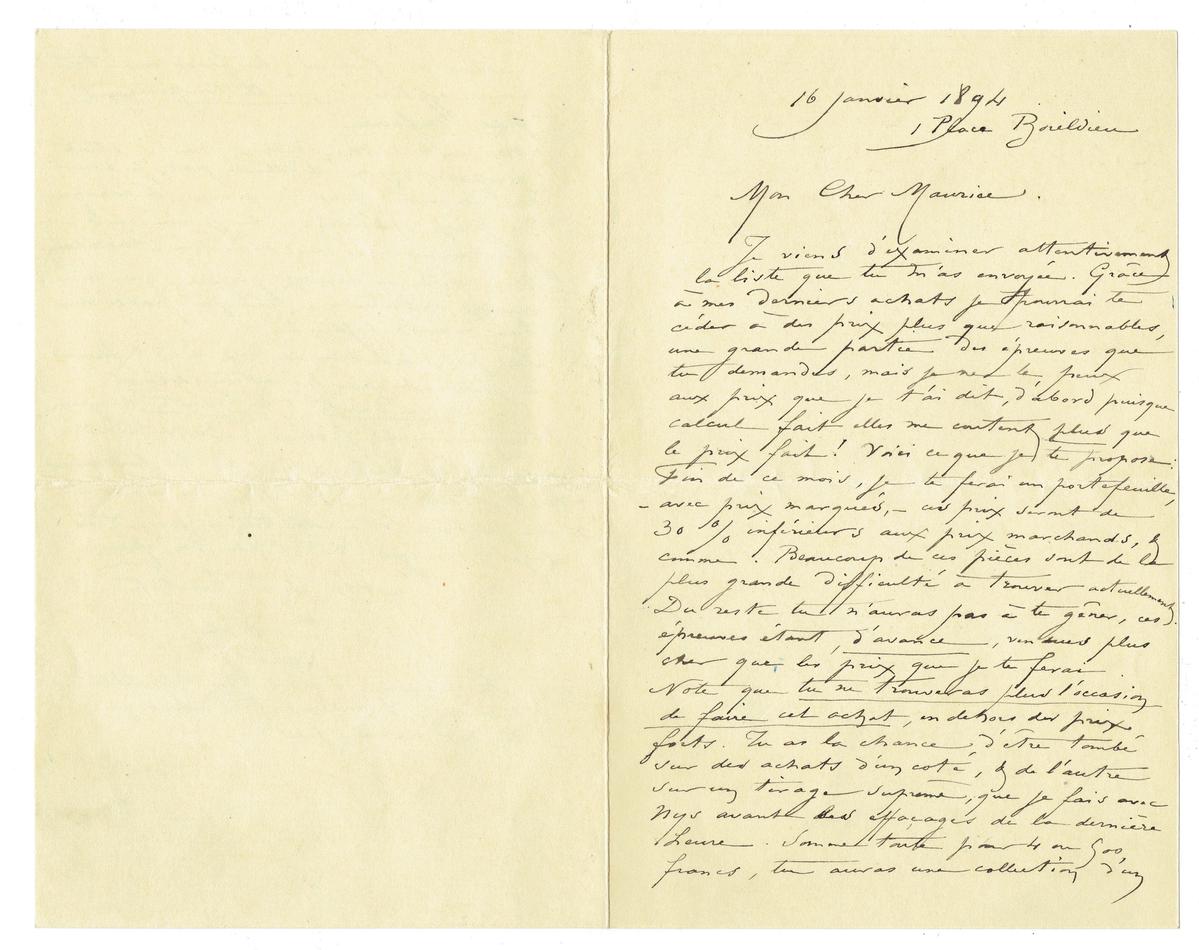 16 Janvier 1894
1 Place Boïeldieu
Mon Cher Maurice.
Je viens d'examiner attentivement
la liste que tu m'as envoyée. Grâce
à mes derniers achats je pourrai te
céder à des prix plus que raisonnables,
une grande partie des épreuves que
tu demandes, mais je ne le peux
aux prix que je t'ai dit, d'abord puisque
calcul fait elles me coutent plus que
le prix fait! Voici ce que je te propose:
Fin de ce mois, je te ferai un portefeuille,
- avec prix marqués, - ces prix seront de
30 % inférieurs aux prix marchands, &
comme. Beaucoup de ces pièces sont de la
plus grande difficulté à trouver actuellement.
Du reste tu n'auras pas à te gêner, ces
épreuves étant, d'avance, vendues plus
cher que les prix que je te ferai
Note que tu ne trouveras plus l'occasion
de faire cet achat, en dehors des prix
forts. Tu as la chance d'être tombé
sur des achats d'un coté, & de l'autre
sur un tirage suprême, que je fais avec
Nys avant les effaçages de la dernière
heure. Somme toute pour 4 ou 500
francs, tu auras une collection d'un